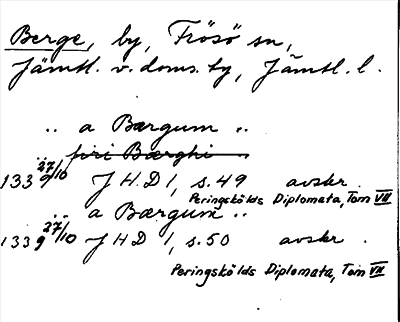 Berge, by, Frösö sn,
Jämtl. v. doms. ty, Jämtl. l.
.. a Bærgum ..
firi Bærghi
1339 27/10 J H D 1, s. 49 avskr.
Peringskölds Diplomata, Tom VII
.. a Bærgum ..
1339 27/10 J H D 1, s. 50 avskr.
Peringskölds Diplomata, Tom VII